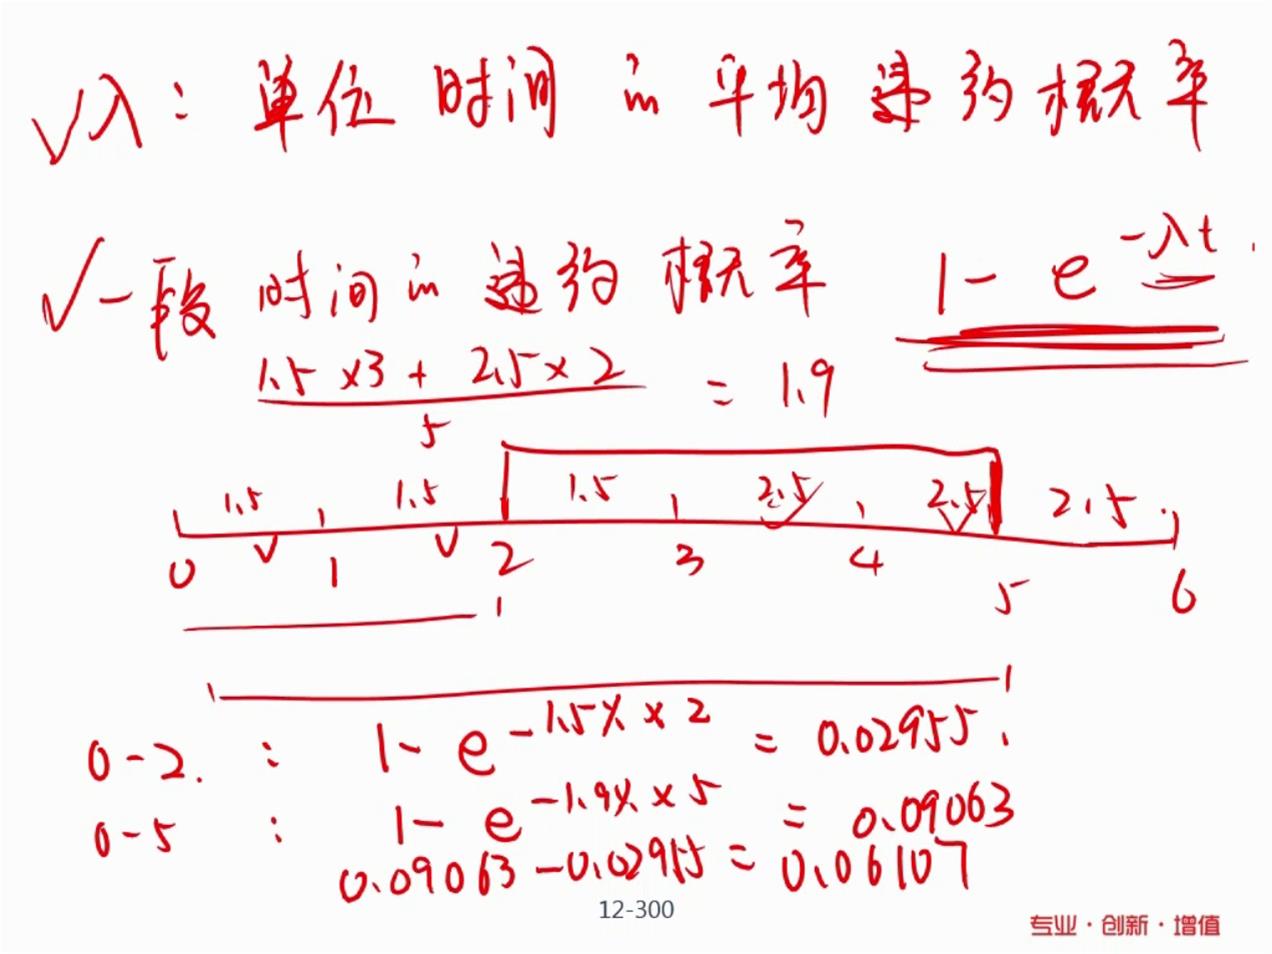 √λ：单位时间内平均违约概率
√一段时间内违约概率 1-e^{-λt}.
1.5×3+2.5×2
5
=1.9
1.5 1.5 1.5 2.5 2.5 2.5
0 1 2 3 4 5 6
0-2. : 1-e^{-1.5%×2}=0.02955.
0-5 : 1-e^{-1.9%×5}=0.09063
0.09063-0.02955=0.06107
12-300
专业·创新·增值